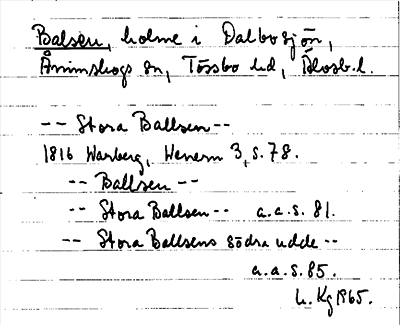 Balsèn, holme i Dalbosjön,
Ånimskogs sn, Tössbo hd, Älvsb.l.
-- Stora Ballsen --
1816 Warberg, Wenern 3, s. 78.
-- Ballsen --
-- Stora Ballsen -- a.a.s. 81.
-- Stora Ballsens södra udde --
a.a.s. 85.
Kg 1965.